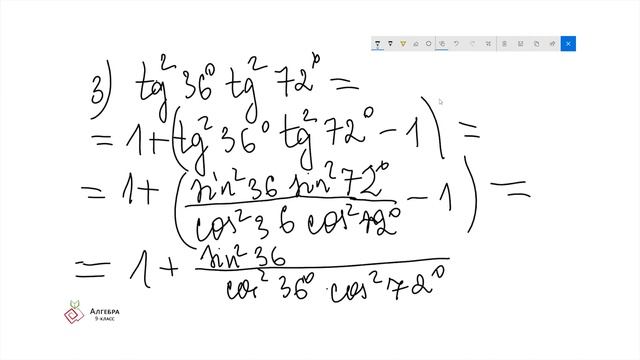 3) tg² 36° tg² 72° =
= 1 + (tg² 36° tg² 72° - 1) =
= 1 + (sin² 36 sin² 72° / cos² 36 cos² 72° - 1) =
= 1 + sin² 36 / cos² 36° · cos² 72°
АЛГЕБРА
9 КЛАСС